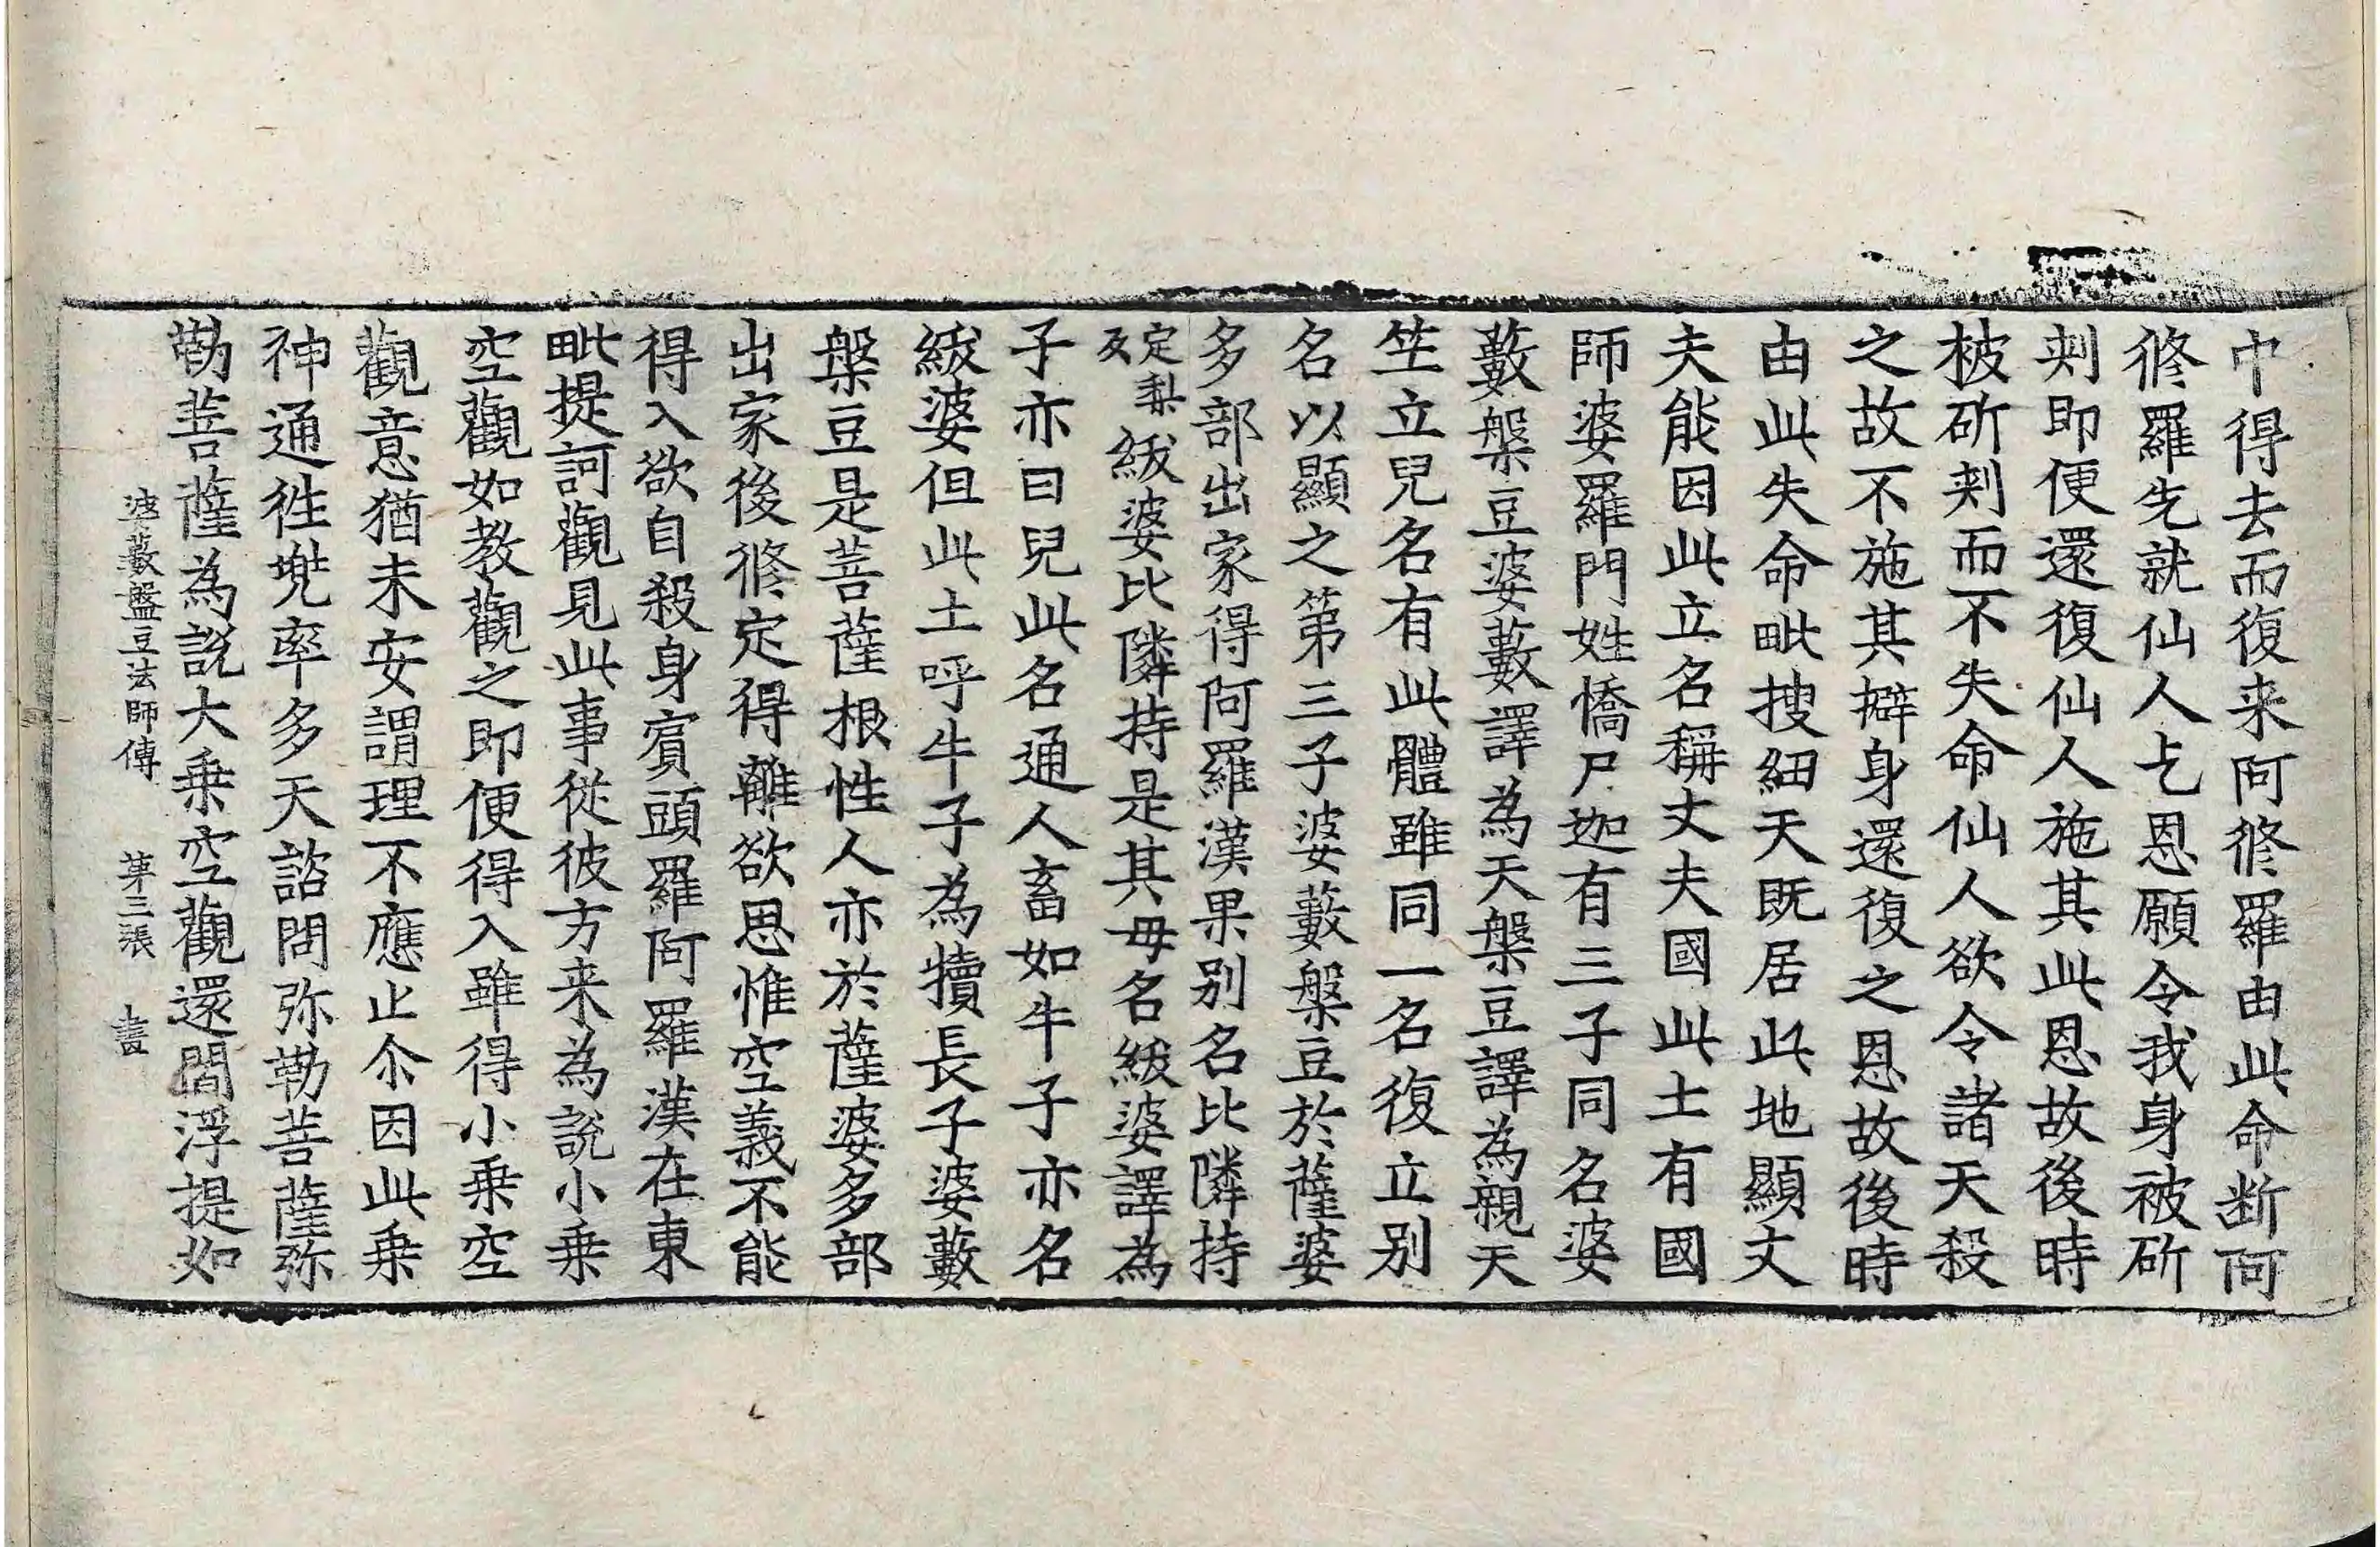 中得去而復来阿修羅由此命断阿
修羅先就仙人乞恩願令我身被斫
刾即便還復仙人施其此恩故後時
被斫刾而不失命仙人欲令諸天殺
之故不施其擗身還復之恩故後時
由此失命毗搜紐天既居此地顯丈
夫能因此立名稱丈夫國此土有國
師婆羅門姓憍尸迦有三子同名婆
藪槃豆婆藪譯為天槃豆譯為親天
竺立兒名有此體雖同一名復立别
名以顯之第三子婆藪槃豆於薩婆
多部出家得阿羅漢果别名比隣持
定梨反紱婆比隣持是其母名紱婆譯為
子亦曰兒此名通人畜如牛子亦名
紱婆但此土呼牛子為犢長子婆藪
槃豆是菩薩根性人亦於薩婆多部
出家後修定得離欲思惟空義不能
得入欲自殺身賓頭羅阿羅漢在東
毗提訶觀見此事從彼方来為說小乗
空觀如教觀之即便得入雖得小乗空
觀意猶未安謂理不應止尒因此乗
神通徃兠率多天諮問弥勒菩薩弥
勒菩薩為說大乗空觀還閻浮提如
婆藪盤豆法師傳 第三張 畫